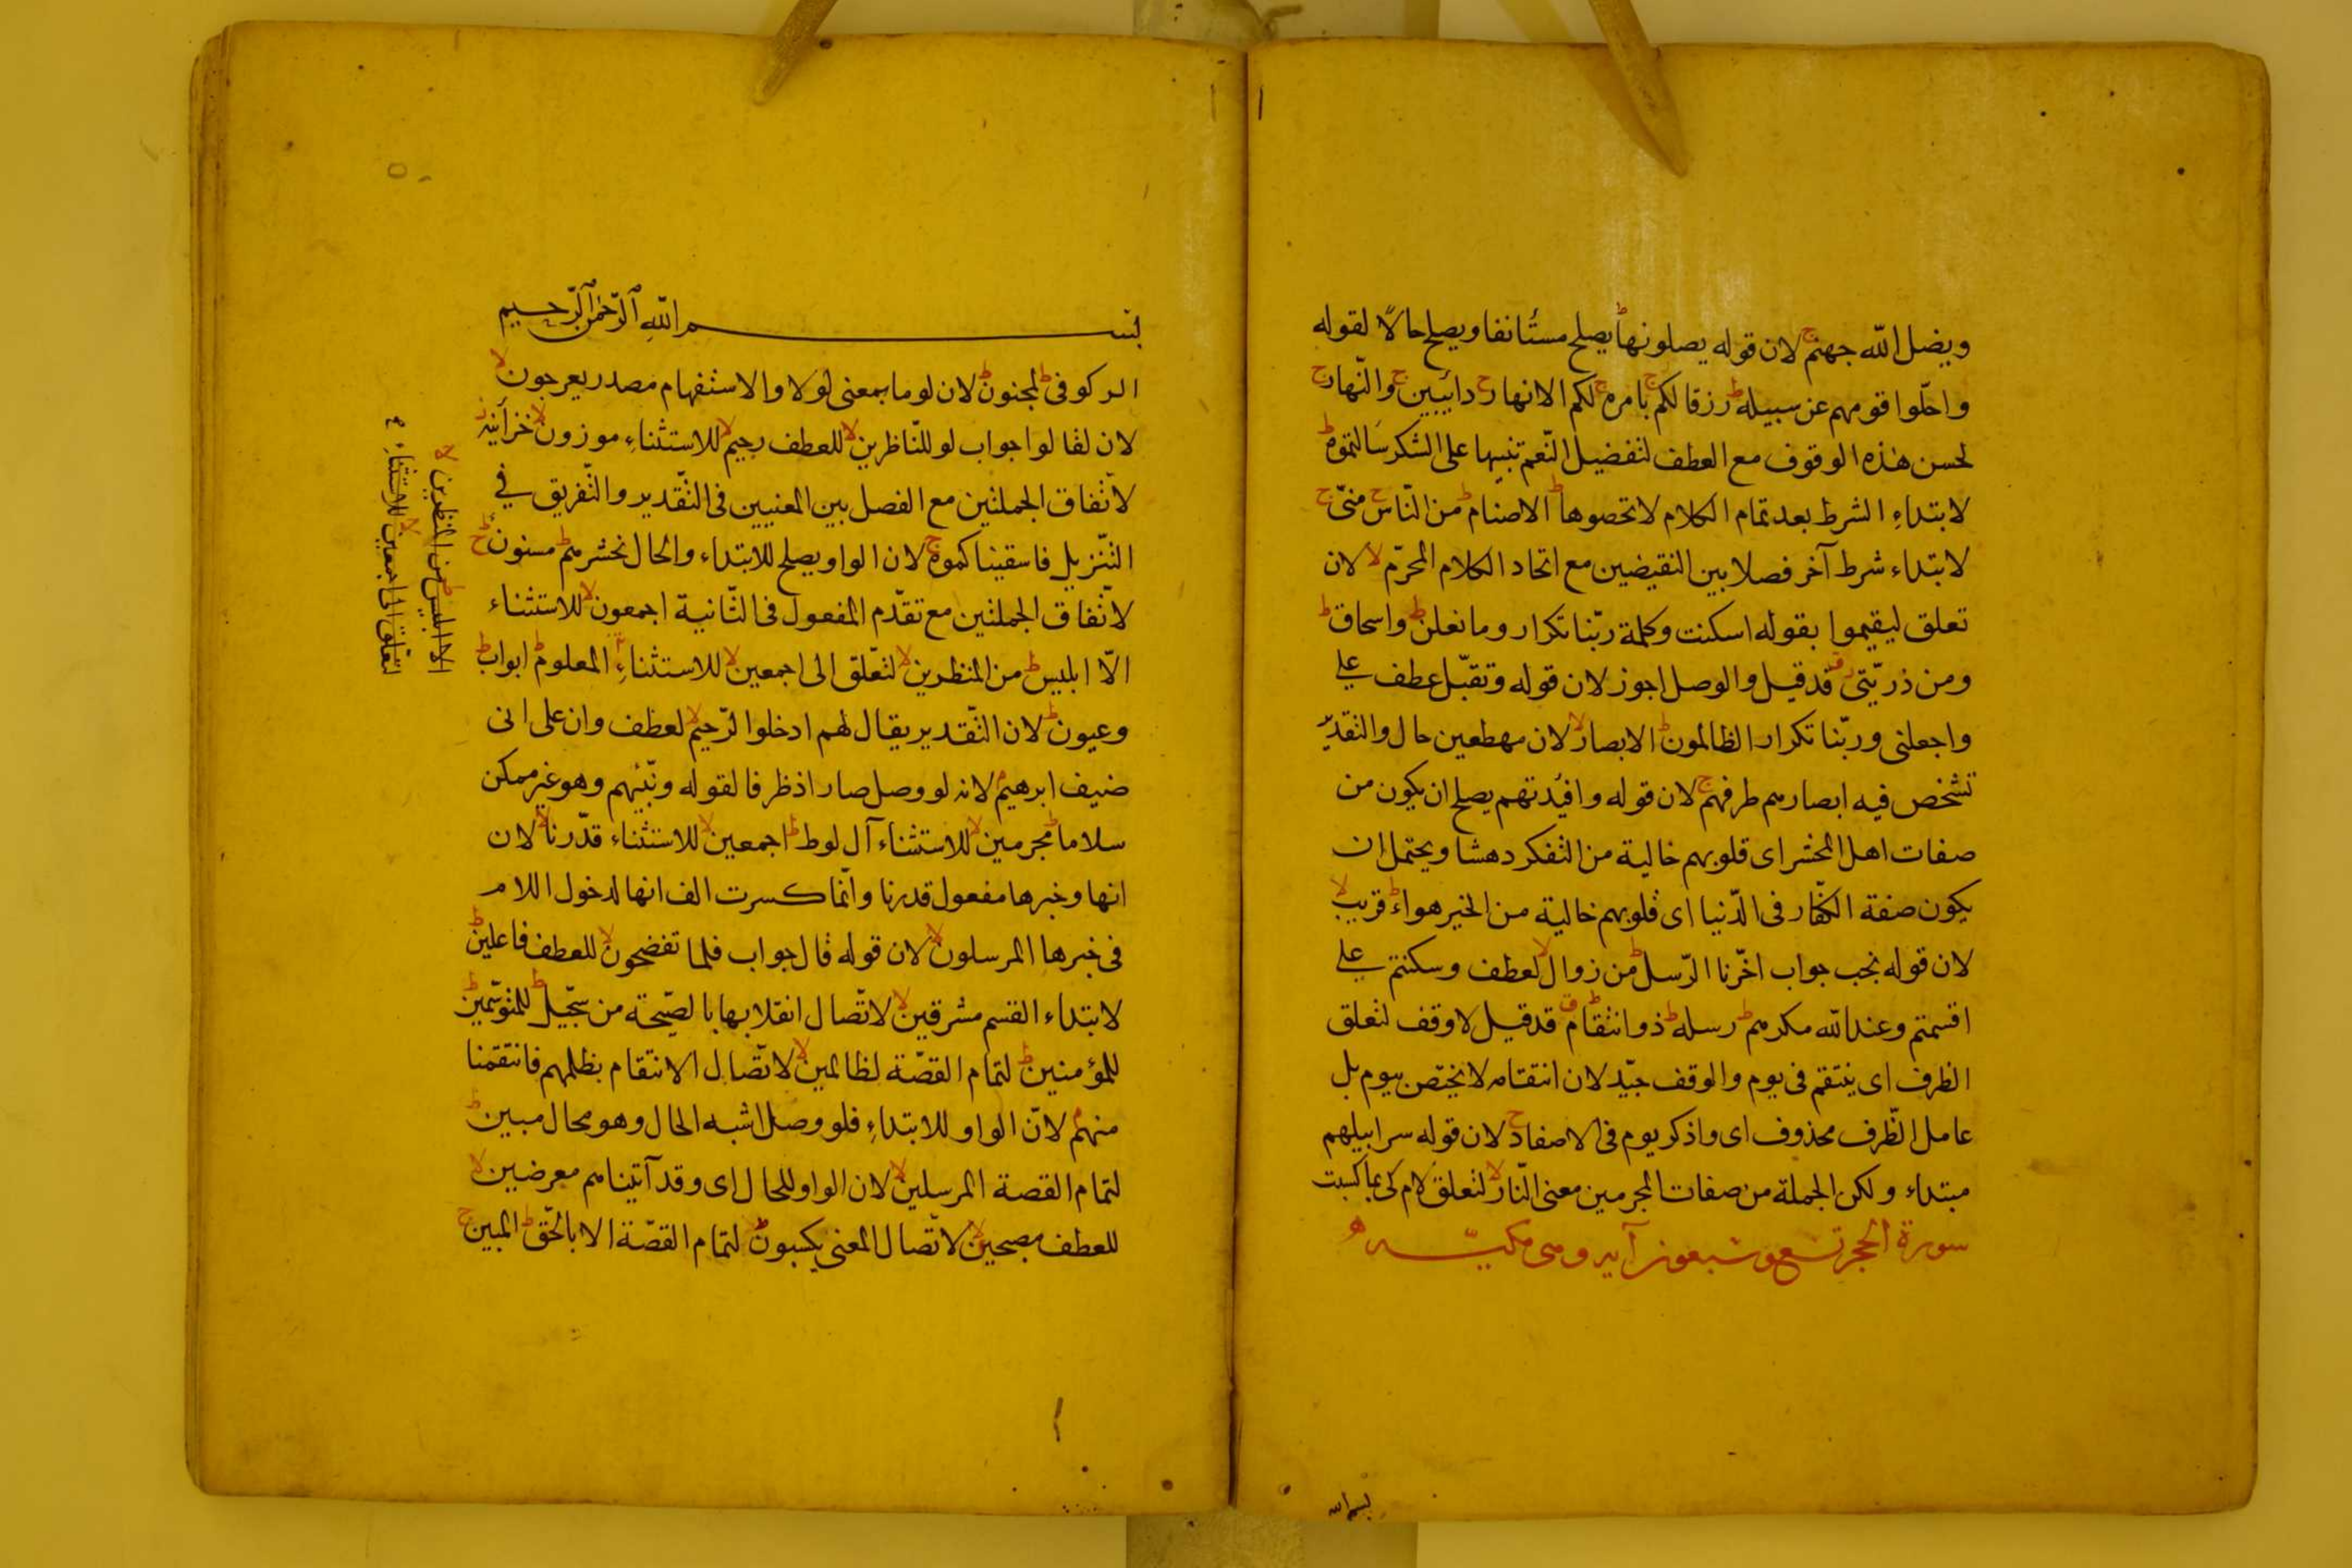 ويضل الله جهنم ج لان قوله يصلونها ط يصلح مستأنفا ويصلح حالا لقوله
واحلّوا قومهم عن سبيله ط رزقا لكم ج بامره ج لكم الانهار ج دائبين ج والنّهار ج
لحسن هذه الوقوف مع العطف لتفضيل النّعم تنبيها على الشكر سألتموه ط
لابتداء الشرط بعد تمام الكلام لا تحصوها ط الاصنام ط من النّاس ج منّى ج
لابتداء شرط آخر فصلا بين النقيضين مع اتحاد الكلام المحرّم لا لان
تعلق ليقيموا بقوله اسكنت وكلمة ربّنا تكرار وما نعلن ط واسحاق ط
ومن ذريّتى ق قد قيل والوصل اجوز لان قوله وتقبّل عطف على
واجعلنى وربّنا تكرار الظالمون ط الابصار لا لان مهطعين حال والتقديّر
تشخص فيه ابصارهم طرفهم ج لان قوله وافئدتهم يصلح ان يكون من
صفات اهل المحشر اى قلوبهم خالية من التفكر دهشا ويحتمل ان
يكون صفة الكفّار فى الدّنيا اى قلوبهم خالية من الخير هواء ط قريب لا
لان قوله نجب جواب اخّرنا الرّسل ط من زوال لا لعطف وسكنتم على
اقسمتم وعند الله مكرهم ط رسله ط ذو انتقام ط ق قد قيل لا وقف لتعلق
الظرف اى ينتقم فى يوم والوقف جيّد لان انتقامه لا يختص بيوم بل
عامل الظّرف محذوف اى واذكر يوم فى الاصفاد ج لان قوله سرابيلهم
مبتداء ولكن الجملة من صفات المجرمين معنى النّار لا لتعلق لام كى بما كسبت
سورة الحجر تسع وتسعون آيه وهى مكيّه
بسم الله
بسم الله الرّحمن الرّحيم
الر كوفى ط لمجنون ط لان لوما بمعنى لولا والاستفهام مصدر يعرجون لا
لان لقالوا جواب لو للنّاظرين لا للعطف رجيم لا للاستثناء موزون لا خزائنه ز
لاتّفاق الجملتين مع الفصل بين المعنيين فى التّقدير والتّفريق فى
التّنزيل فاسقيناكموه ج لان الواو يصلح للابتداء والحال نحشرهم ط مسنون ج
لاتّفاق الجملتين مع تقدّم المفعول فى الثّانية اجمعون لا للاستثناء
الّا ابليس ط من المنظرين لا لتعّلق الى اجمعين لا للاستثناء المعلوم ط ابواب ط
وعيون ط لان التّقدير يقال لهم ادخلوا الرّحيم لا لعطف وان على انى
ضيف ابرهيم م لانه لو وصل صار اذ ظرفا لقوله ونبّئهم وهو غير ممكن
سلاما ط مجرمين لا للاستثناء آل لوط ط اجمعين لا للاستثناء قدّرنا لا لان
انها وخبرها مفعول قدرنا وانّما كسرت الف انها لدخول اللام
فى خبرها المرسلون لا لان قوله قال جواب فلما تفضحون لا للعطف فاعلين ط
لابتداء القسم مشرقين لا لاتّصال انقلابها بالصّيحة من سجّيل ط للمتوسّمين ط
للمؤمنين ط لتمام القصّة لظالمين لا لاتّصال الانتقام بظلمهم فانتقمنا
منهم م لانّ الواو للابتداء فلو وصل اشبه الحال وهو محال مبين ط
لتمام القصة المرسلين لا لان الواو للحال اى وقد آتيناهم معرضين لا
للعطف مصبحين لا لاتّصال المعنى يكسبون ط لتمام القصّة الا بالحّق ط المبين ج
الا ابليس ط من المنظرين لا
لتعّلق الى اجمعين لا للاستثناء